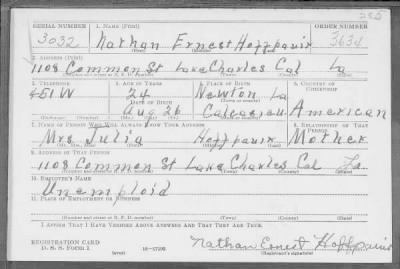 SERIAL NUMBER 1. NAME (Print) ORDER NUMBER
3032 Nathan Ernest Hoffpauir 3634
2. ADDRESS (Print)
1108 Common St Lake Charles Cal La
3. TELEPHONE 4. AGE IN YEARS 5. PLACE OF BIRTH 6. COUNTRY OF CITIZENSHIP
451W 24 Newton La
DATE OF BIRTH
Aug 26 Calcasieu American
7. NAME OF PERSON WHO WILL ALWAYS KNOW YOUR ADDRESS 8. RELATIONSHIP OF THAT PERSON
Mrs. Julia Hoffpauir Mother
9. ADDRESS OF THAT PERSON
1108 Common St Lake Charles Cal La
10. EMPLOYER'S NAME
Unemploid
11. PLACE OF EMPLOYMENT OR BUSINESS
I AFFIRM THAT I HAVE VERIFIED ABOVE ANSWERS AND THAT THEY ARE TRUE.
REGISTRATION CARD
D. S. S. Form 1 (over) 16-17296
Nathan Ernest Hoffpauir
(Registrant's signature)